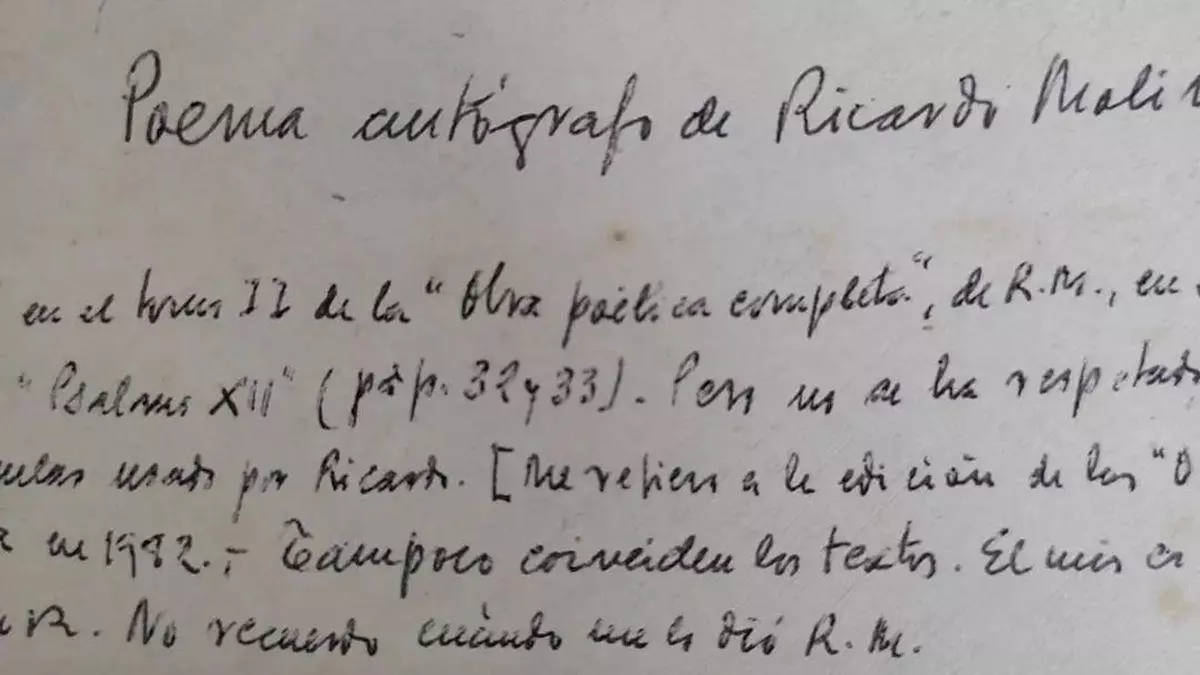 Poema autógrafo de Ricardo Moli
en el tomo II de la "Obra poética completa", de R.M., en
"Psalmo XII" (pág. 32 y 33). Pero no se ha respetado
usado por Ricardo. [Me refiero a la edición de las "O
en 1982.- Tampoco coinciden los textos. El mío es
R. No recuerdo cuándo me lo dió R.M.